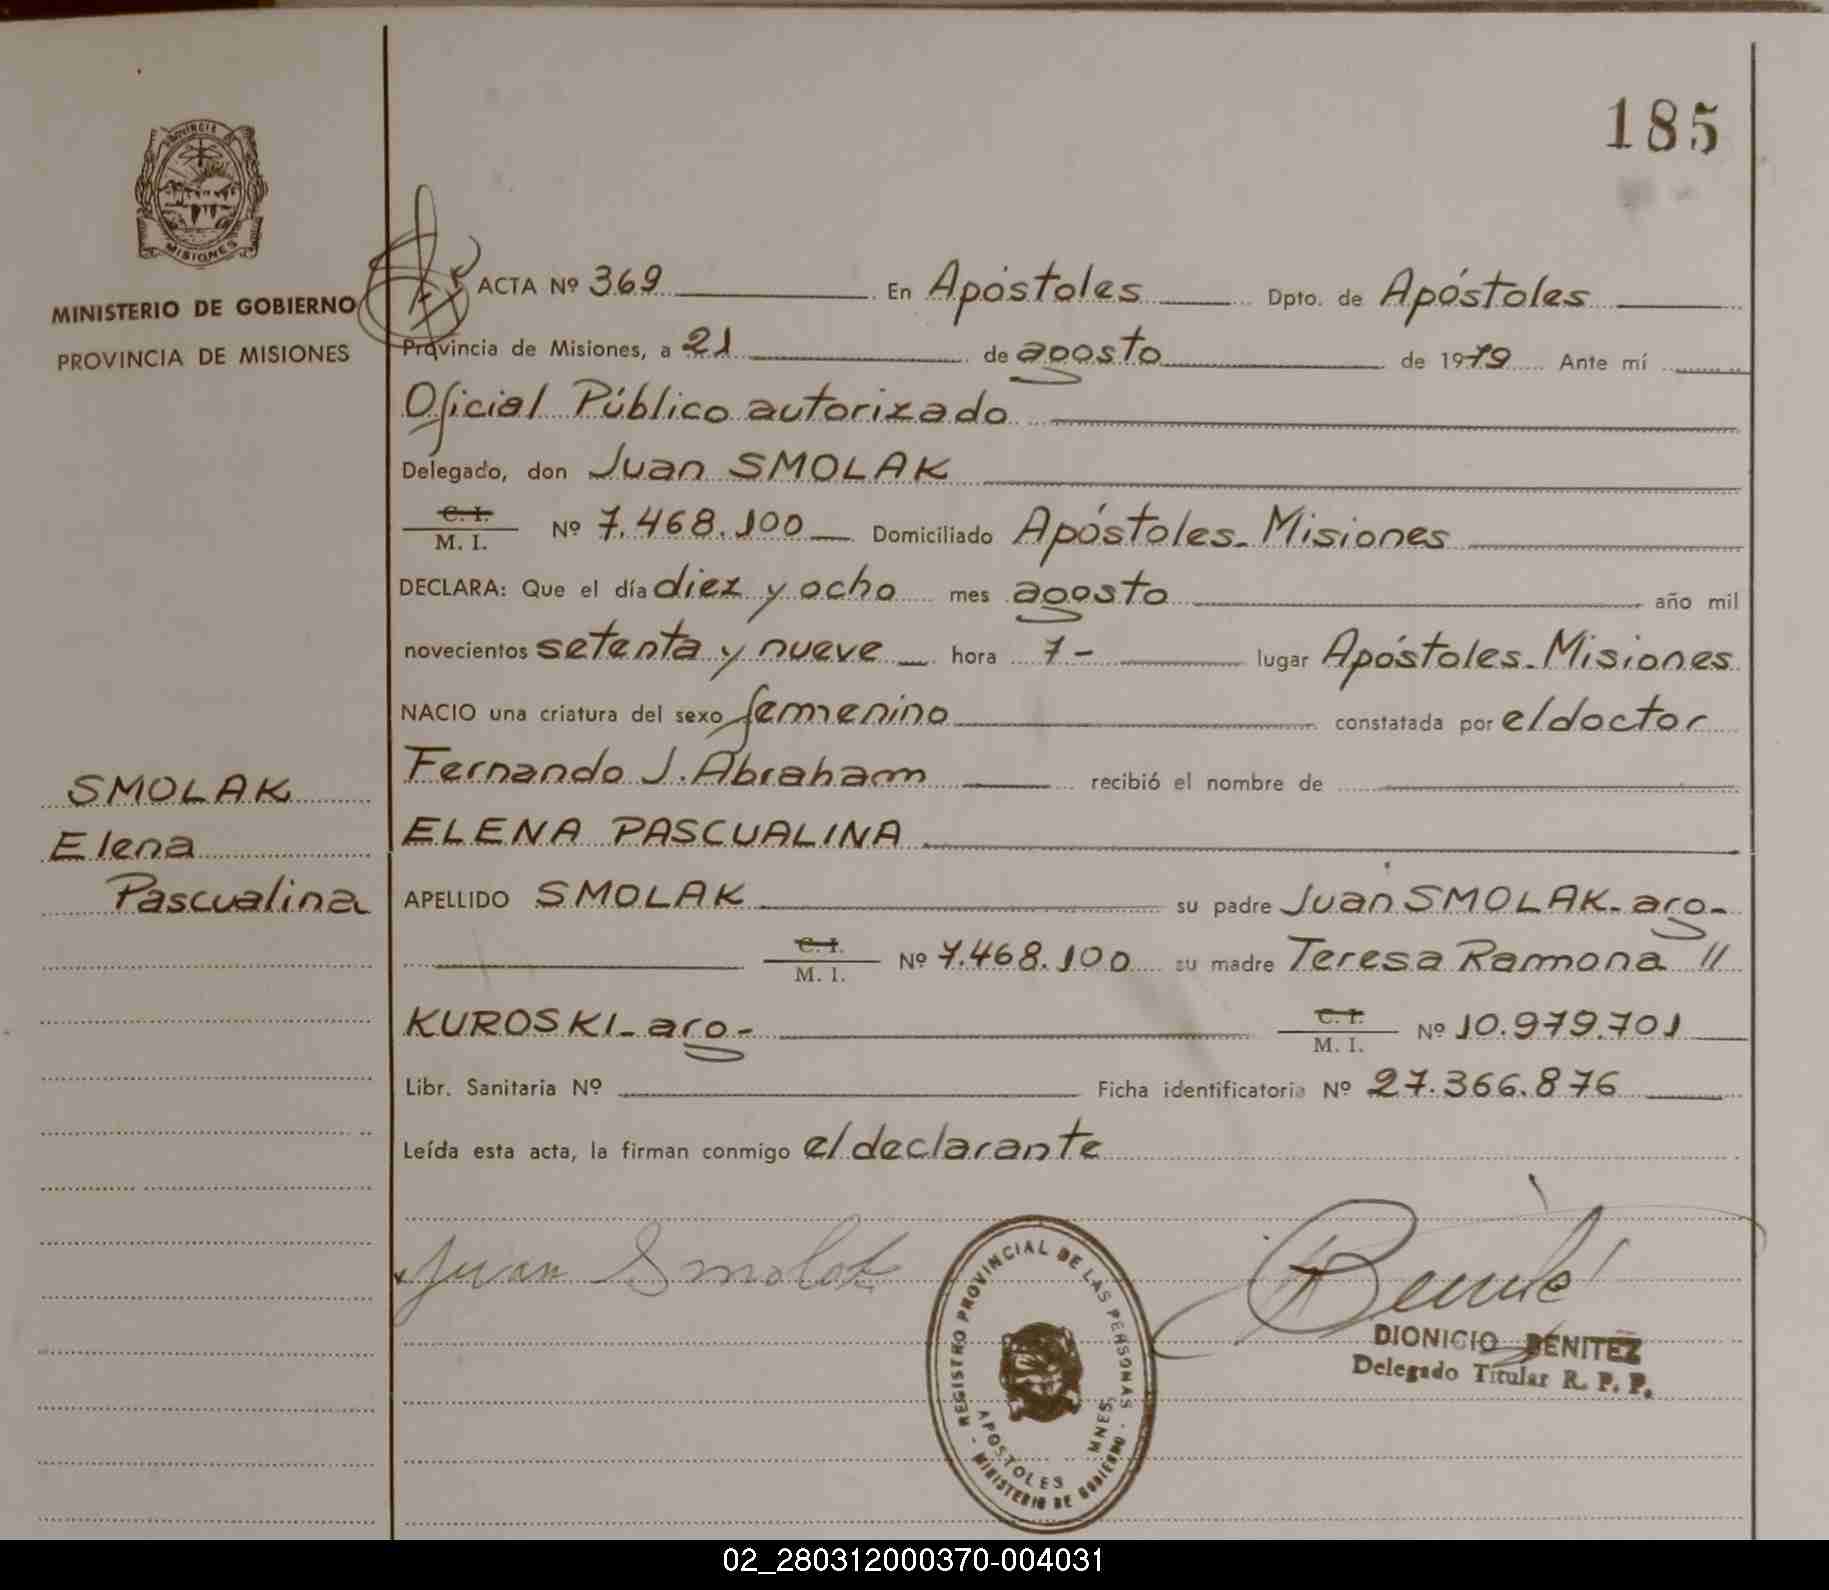 185
PROVINCIA
MISIONES
MINISTERIO DE GOBIERNO
PROVINCIA DE MISIONES
ACTA Nº 369 En Apóstoles Dpto. de Apóstoles
Provincia de Misiones, a 21 de agosto de 1979 Ante mí
Oficial Público autorizado
Delegado, don Juan SMOLAK
C. I.
M. I. Nº 7.468.100 Domiciliado Apóstoles-Misiones
DECLARA: Que el día diez y ocho mes agosto año mil
novecientos setenta y nueve hora 7- lugar Apóstoles-Misiones
NACIO una criatura del sexo femenino constatada por el doctor
Fernando J. Abraham recibió el nombre de
SMOLAK
Elena
Pascualina
ELENA PASCUALINA
APELLIDO SMOLAK su padre Juan SMOLAK-arg-
C. I.
M. I. Nº 7.468.100 su madre Teresa Ramona //
KUROSKI-arg- C. I.
M. I. Nº 10.979.701
Libr. Sanitaria Nº Ficha identificatoria Nº 27.366.876
Leída esta acta, la firman conmigo el declarante
Juan Smolak
REGISTRO PROVINCIAL DE LAS PERSONAS
APOSTOLES MNES.
MINISTERIO DE GOBIERNO
DIONICIO BENITEZ
Delegado Titular R. P. P.
02_280312000370-004031